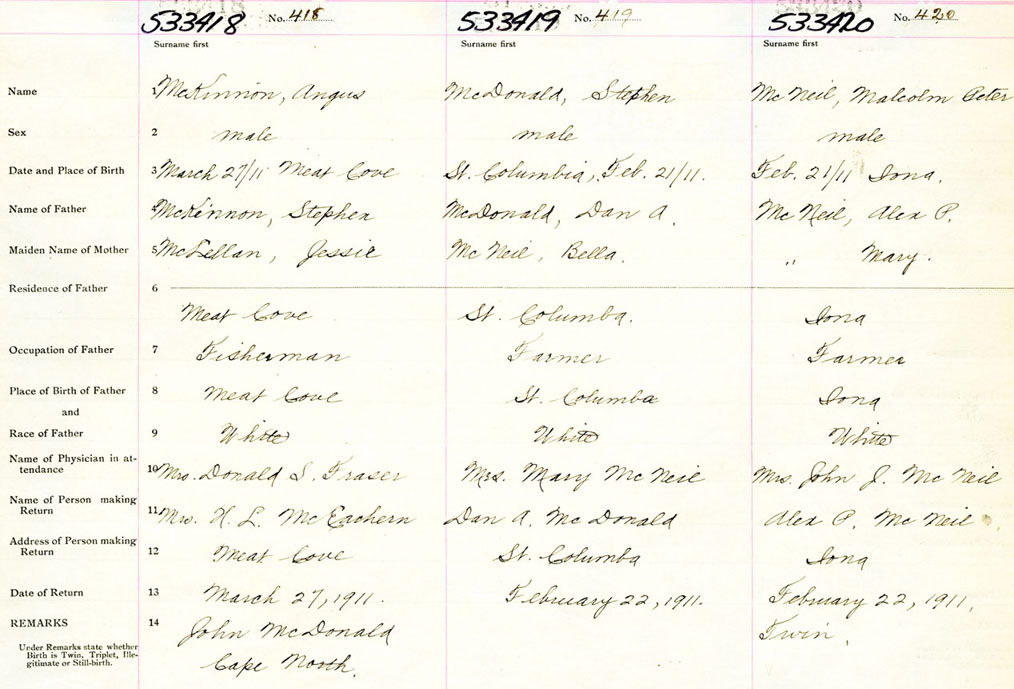 533418 No. 418 533419 No. 419 533420 No. 420
Surname first Surname first Surname first
Name 1 McKinnon, Angus McDonald, Stephen McNeil, Malcolm Peter
Sex 2 male male male
Date and Place of Birth 3 March 27/11 Meat Cove St. Columbia, Feb. 21/11. Feb. 21/11 Iona.
Name of Father 4 McKinnon, Stephen McDonald, Dan A. McNeil, Alex P.
Maiden Name of Mother 5 McLellan, Jessie McNeil, Bella. " Mary.
Residence of Father 6
Meat Cove St. Columba. Iona
Occupation of Father 7 Fisherman Farmer Farmer
Place of Birth of Father 8 Meat Cove St. Columba Iona
and
Race of Father 9 White White White
Name of Physician in at-
tendance 10 Mrs. Donald S. Fraser Mrs. Mary McNeil Mrs. John J. McNeil
Name of Person making
Return 11 Mrs. H. L. McEachern Dan A. McDonald Alex P. McNeil
Address of Person making
Return 12 Meat Cove St. Columba Iona
Date of Return 13 March 27, 1911. February 22, 1911. February 22, 1911,
REMARKS 14 John McDonald Twin.
Under Remarks state whether
Birth is Twin, Triplet, Ille-
gitimate or Still-birth.
Cape North.